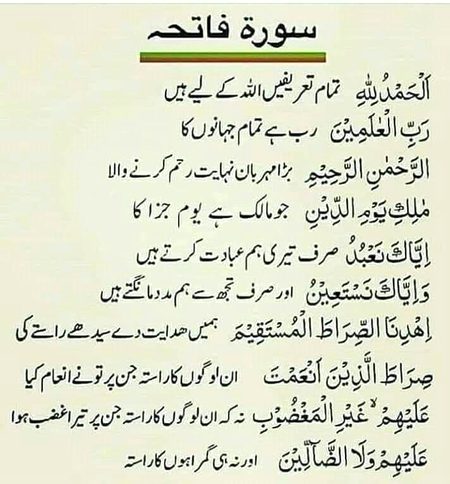 سورۃ فاتحہ
اَلْحَمْدُ لِلّٰهِ تمام تعریفیں اللہ کے لیے ہیں
رَبِّ الْعٰلَمِيْنَ رب ہے تمام جہانوں کا
الرَّحْمٰنِ الرَّحِيْمِ بڑا مہربان نہایت رحم کرنے والا
مٰلِكِ يَوْمِ الدِّيْنِ جو مالک ہے یوم جزا کا
اِيَّاكَ نَعْبُدُ صرف تیری ہم عبادت کرتے ہیں
وَاِيَّاكَ نَسْتَعِيْنُ اور صرف تجھ سے ہم مدد مانگتے ہیں
اِهْدِنَا الصِّرَاطَ الْمُسْتَقِيْمَ ہمیں ھدایت دے سیدھے راستے کی
صِرَاطَ الَّذِيْنَ اَنْعَمْتَ ان لوگوں کا راستہ جن پر تو نے انعام کیا
عَلَيْهِمْ ۙ غَيْرِ الْمَغْضُوْبِ نہ کہ ان لوگوں کا راستہ جن پر تیرا غضب ہوا
عَلَيْهِمْ وَلَا الضَّآلِّيْنَ اور نہ ہی گمراہوں کا راستہ